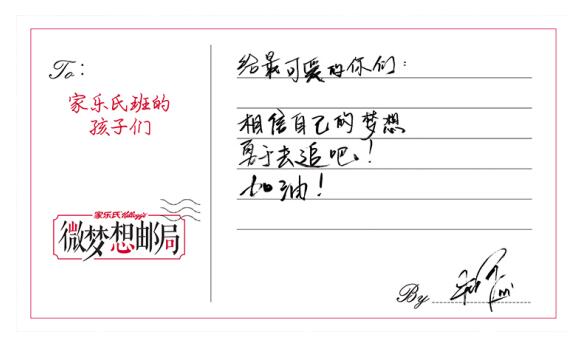 To:
家乐氏班的
孩子们
家乐氏 Kellogg's
微梦想邮局
给最可爱的你们:
相信自己的梦想
勇于去追吧!
加油!
By